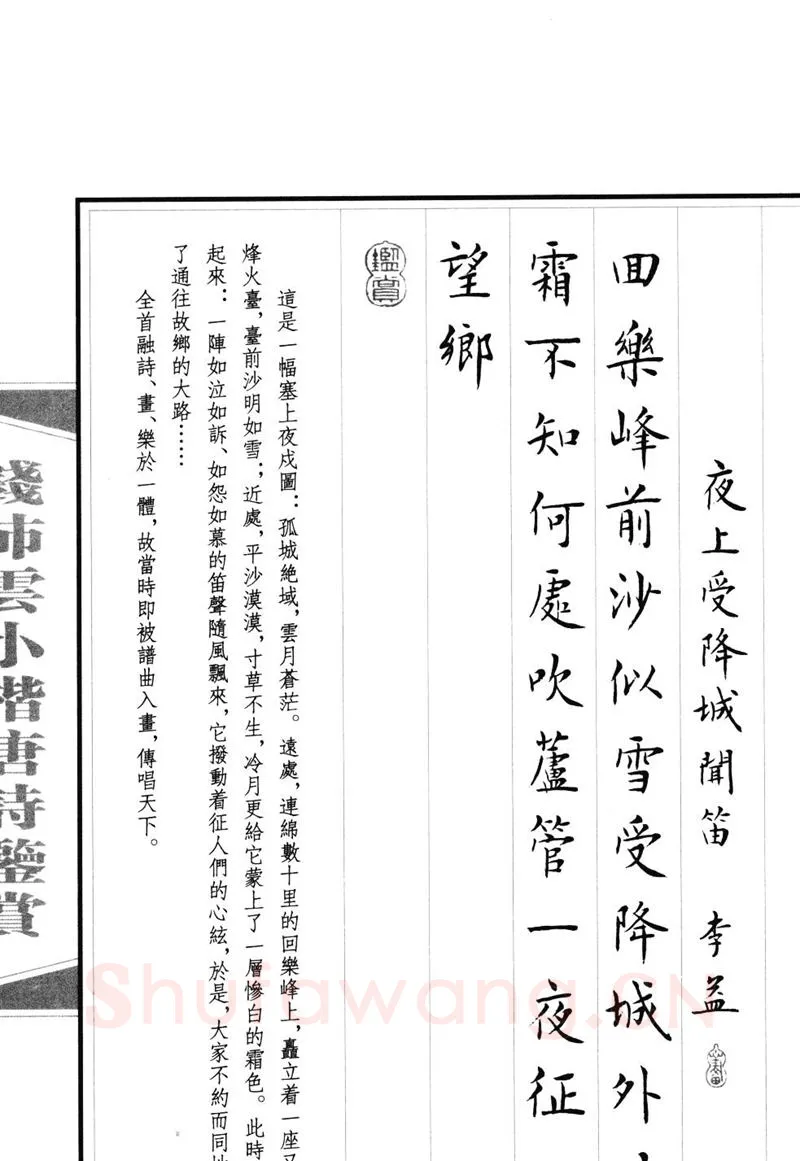 夜上受降城聞笛 李益
回樂峰前沙似雪受降城外
霜不知何處吹蘆管一夜征
望鄉
鑑賞
這是一幅塞上夜戍圖：孤城絶域，雲月蒼茫。遠處，連綿數十里的回樂峰上，矗立着一座
烽火臺，臺前沙明如雪；近處，平沙漠漠，寸草不生，冷月更給它蒙上了一層慘白的霜色。此時
起來：一陣如泣如訴、如怨如慕的笛聲隨風飄來，它撥動着征人們的心絃，於是，大家不約而同
了通往故鄉的大路……
全首融詩、畫、樂於一體，故當時即被譜曲入畫，傳唱天下。
錢沛雲小楷唐詩鑒賞
Shufawang.CN